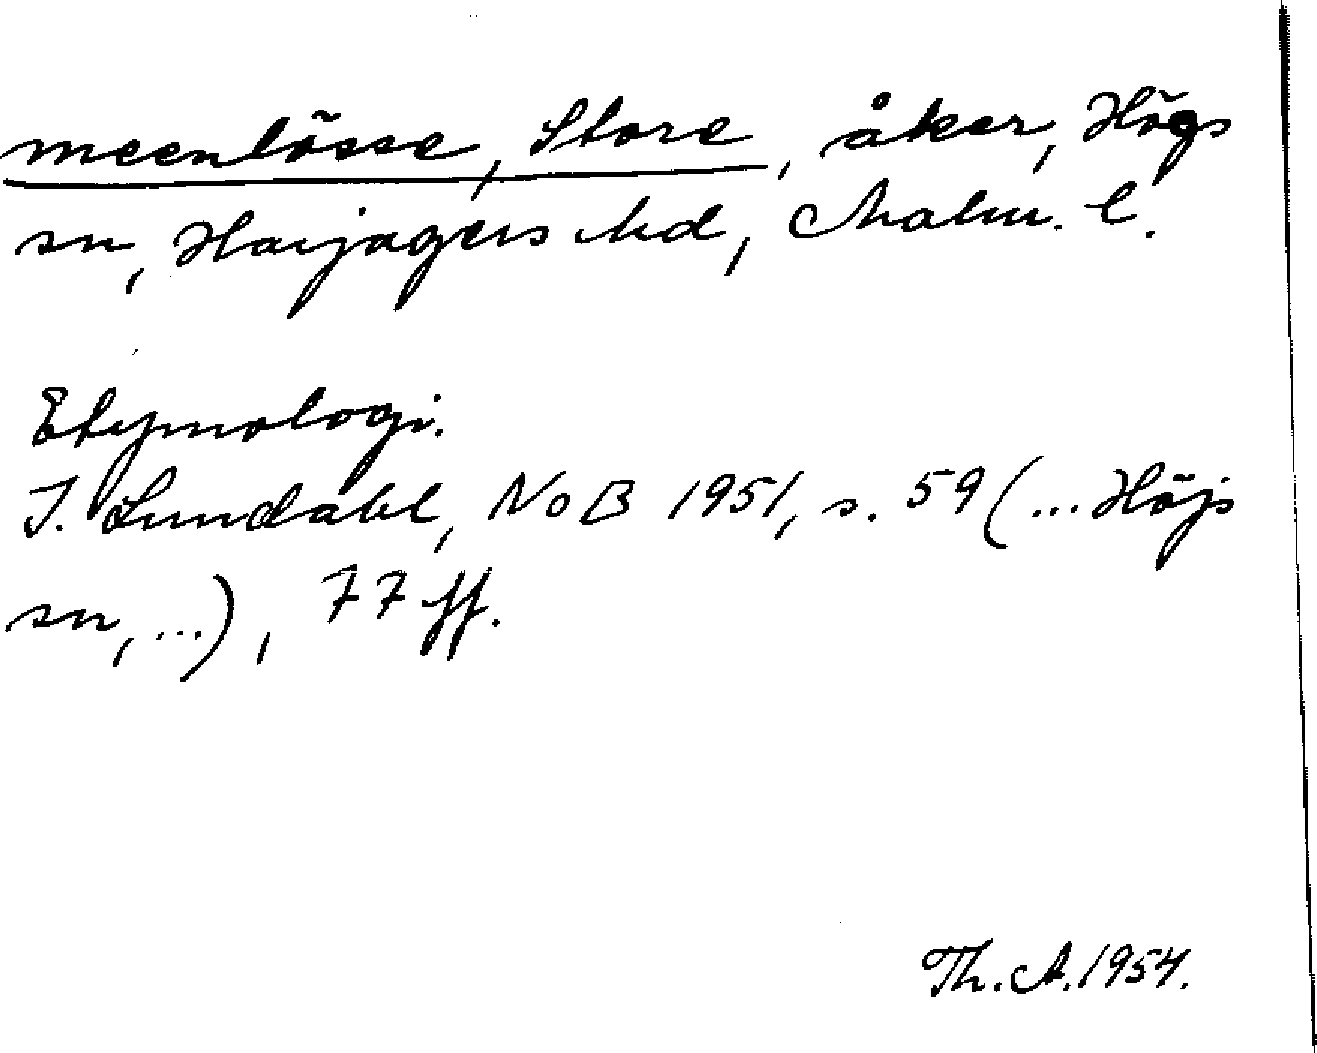 meenlösse, Store, åker, Högs
sn, Harjagers hd, Malm. l.
Etymologi.
I. Lundahl, NoB 1951, s. 59 (... Höjs
sn, ...), 77 ff.
Th. A. 1954.